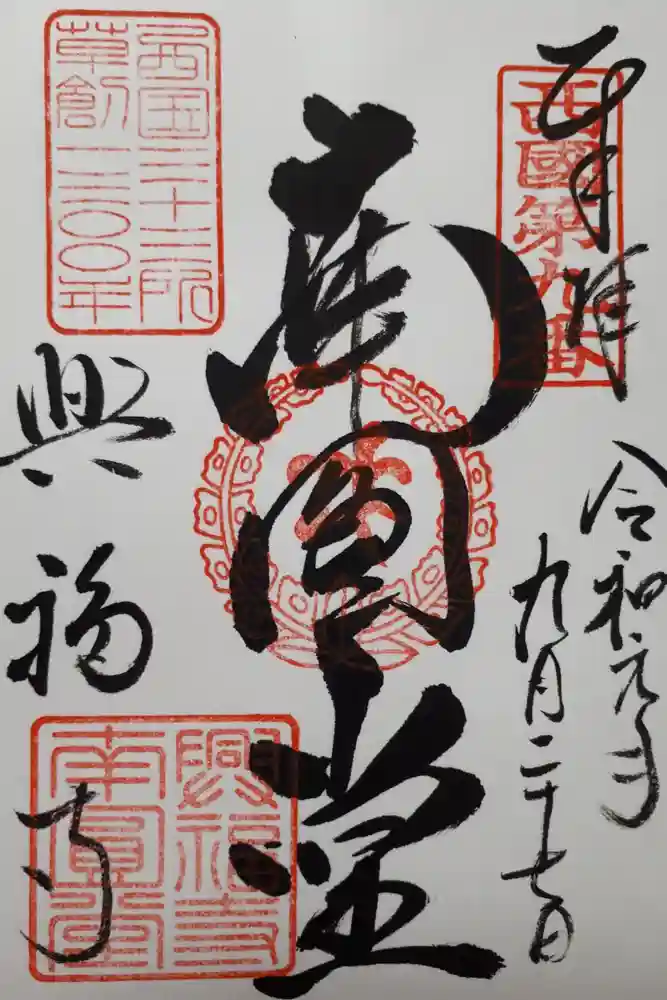 奉拝
西國第九番
令和元年
九月二十七日
南円堂
西国三十三所
草創一三〇〇年
興福寺
興福寺
南圓堂